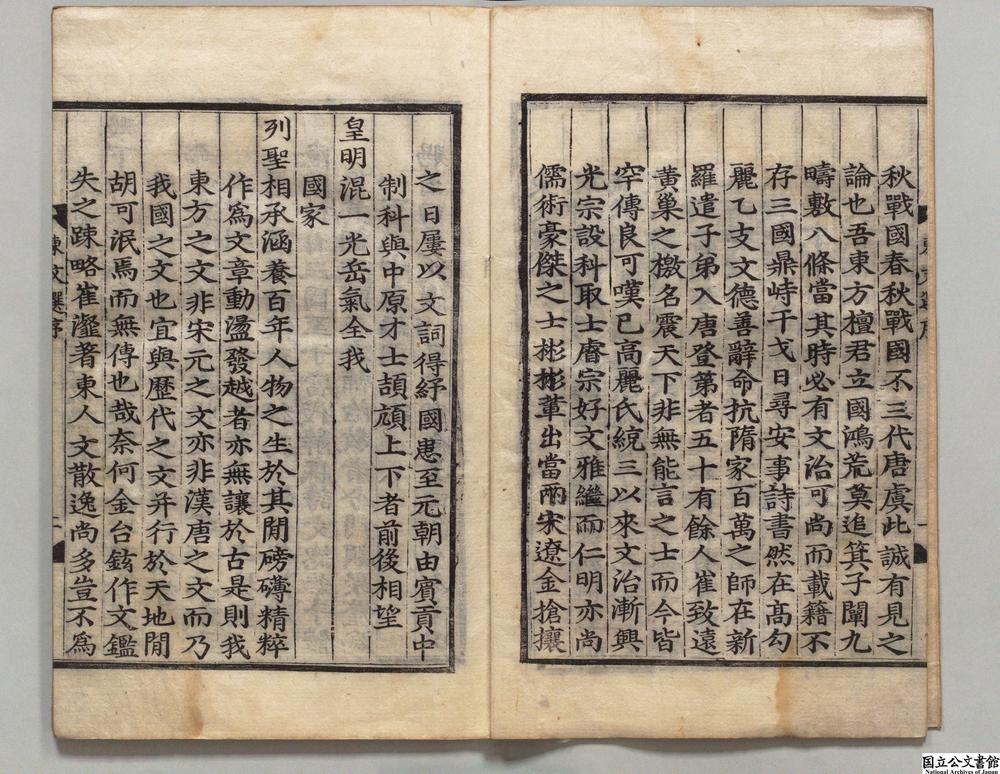 秋戰國春秋戰國不三代唐虞此誠有見之
論也吾東方檀君立國鴻荒莫追箕子闡九
疇敷八條當其時必有文治可尚而載籍不
存三國鼎峙干戈日尋安事詩書然在髙勾
麗乙支文德善辭命抗隋家百萬之師在新
羅遣子弟入唐登第者五十有餘人崔致遠
黃巢之檄名震天下非無能言之士而今皆
罕傳良可嘆已高麗氏統三以來文治漸興
光宗設科取士睿宗好文雅繼而仁明亦尚
儒術豪傑之士彬彬輩出當兩宋遼金搶攘
之日屢以文詞得紓國患至元朝由賓貢中
制科與中原才士頡頏上下者前後相望
皇明混一光岳氣全我
國家
列聖相承涵養百年人物之生於其間磅礴精粹
作爲文章動盪發越者亦無讓於古是則我
東方之文非宋元之文亦非漢唐之文而乃
我國之文也宜與歷代之文并行於天地間
胡可泯焉而無傳也哉奈何金台鉉作文鑑
失之踈略崔瀣著東人文散逸尚多豈不爲
東文選序
二
国立公文書館
National Archives of Japan